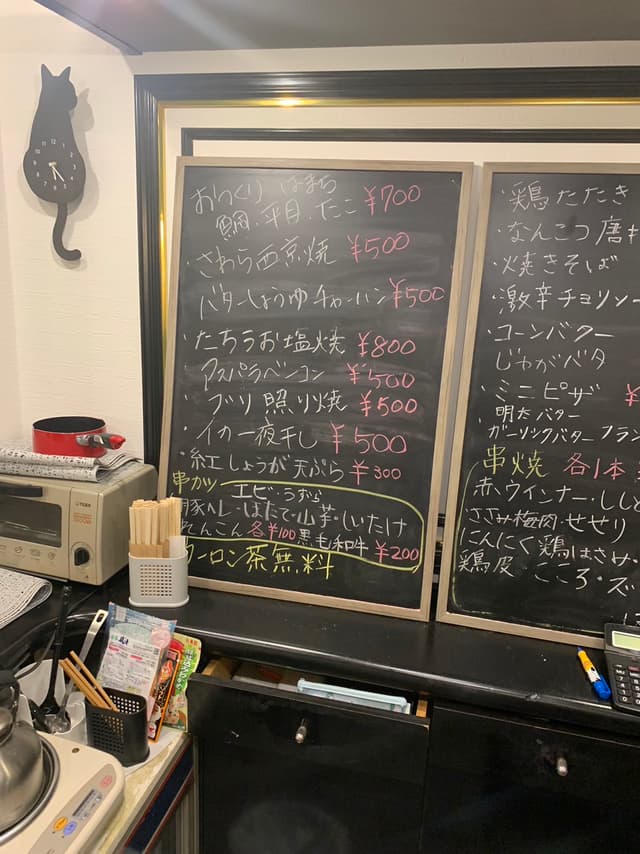 おつくり はまち
鯛・平目・たこ ¥700
さわら西京焼 ¥500
バターしょうゆチャーハン ¥500
・たちうお塩焼 ¥800
アスパラベーコン ¥500
・ブリ照り焼 ¥500
・イカ一夜干し ¥500
・紅しょうが天ぷら ¥300
串カツ エビ・うずら
豚ヘレ・ほたて・山芋・しいたけ
れんこん 各¥100 黒毛和牛 ¥200
ウーロン茶無料
・鶏たたき
・なんこつ唐
・焼きそば
・激辛チョリソ
・コーンバター
じゃがバタ
・ミニピザ ¥
明太バター
ガーリックバター フラン
串焼 各1本
赤ウインナー・しし
ささみ梅肉・せせり
にんにく鶏はさみ・
鶏皮・こころ・ズ
TIGER